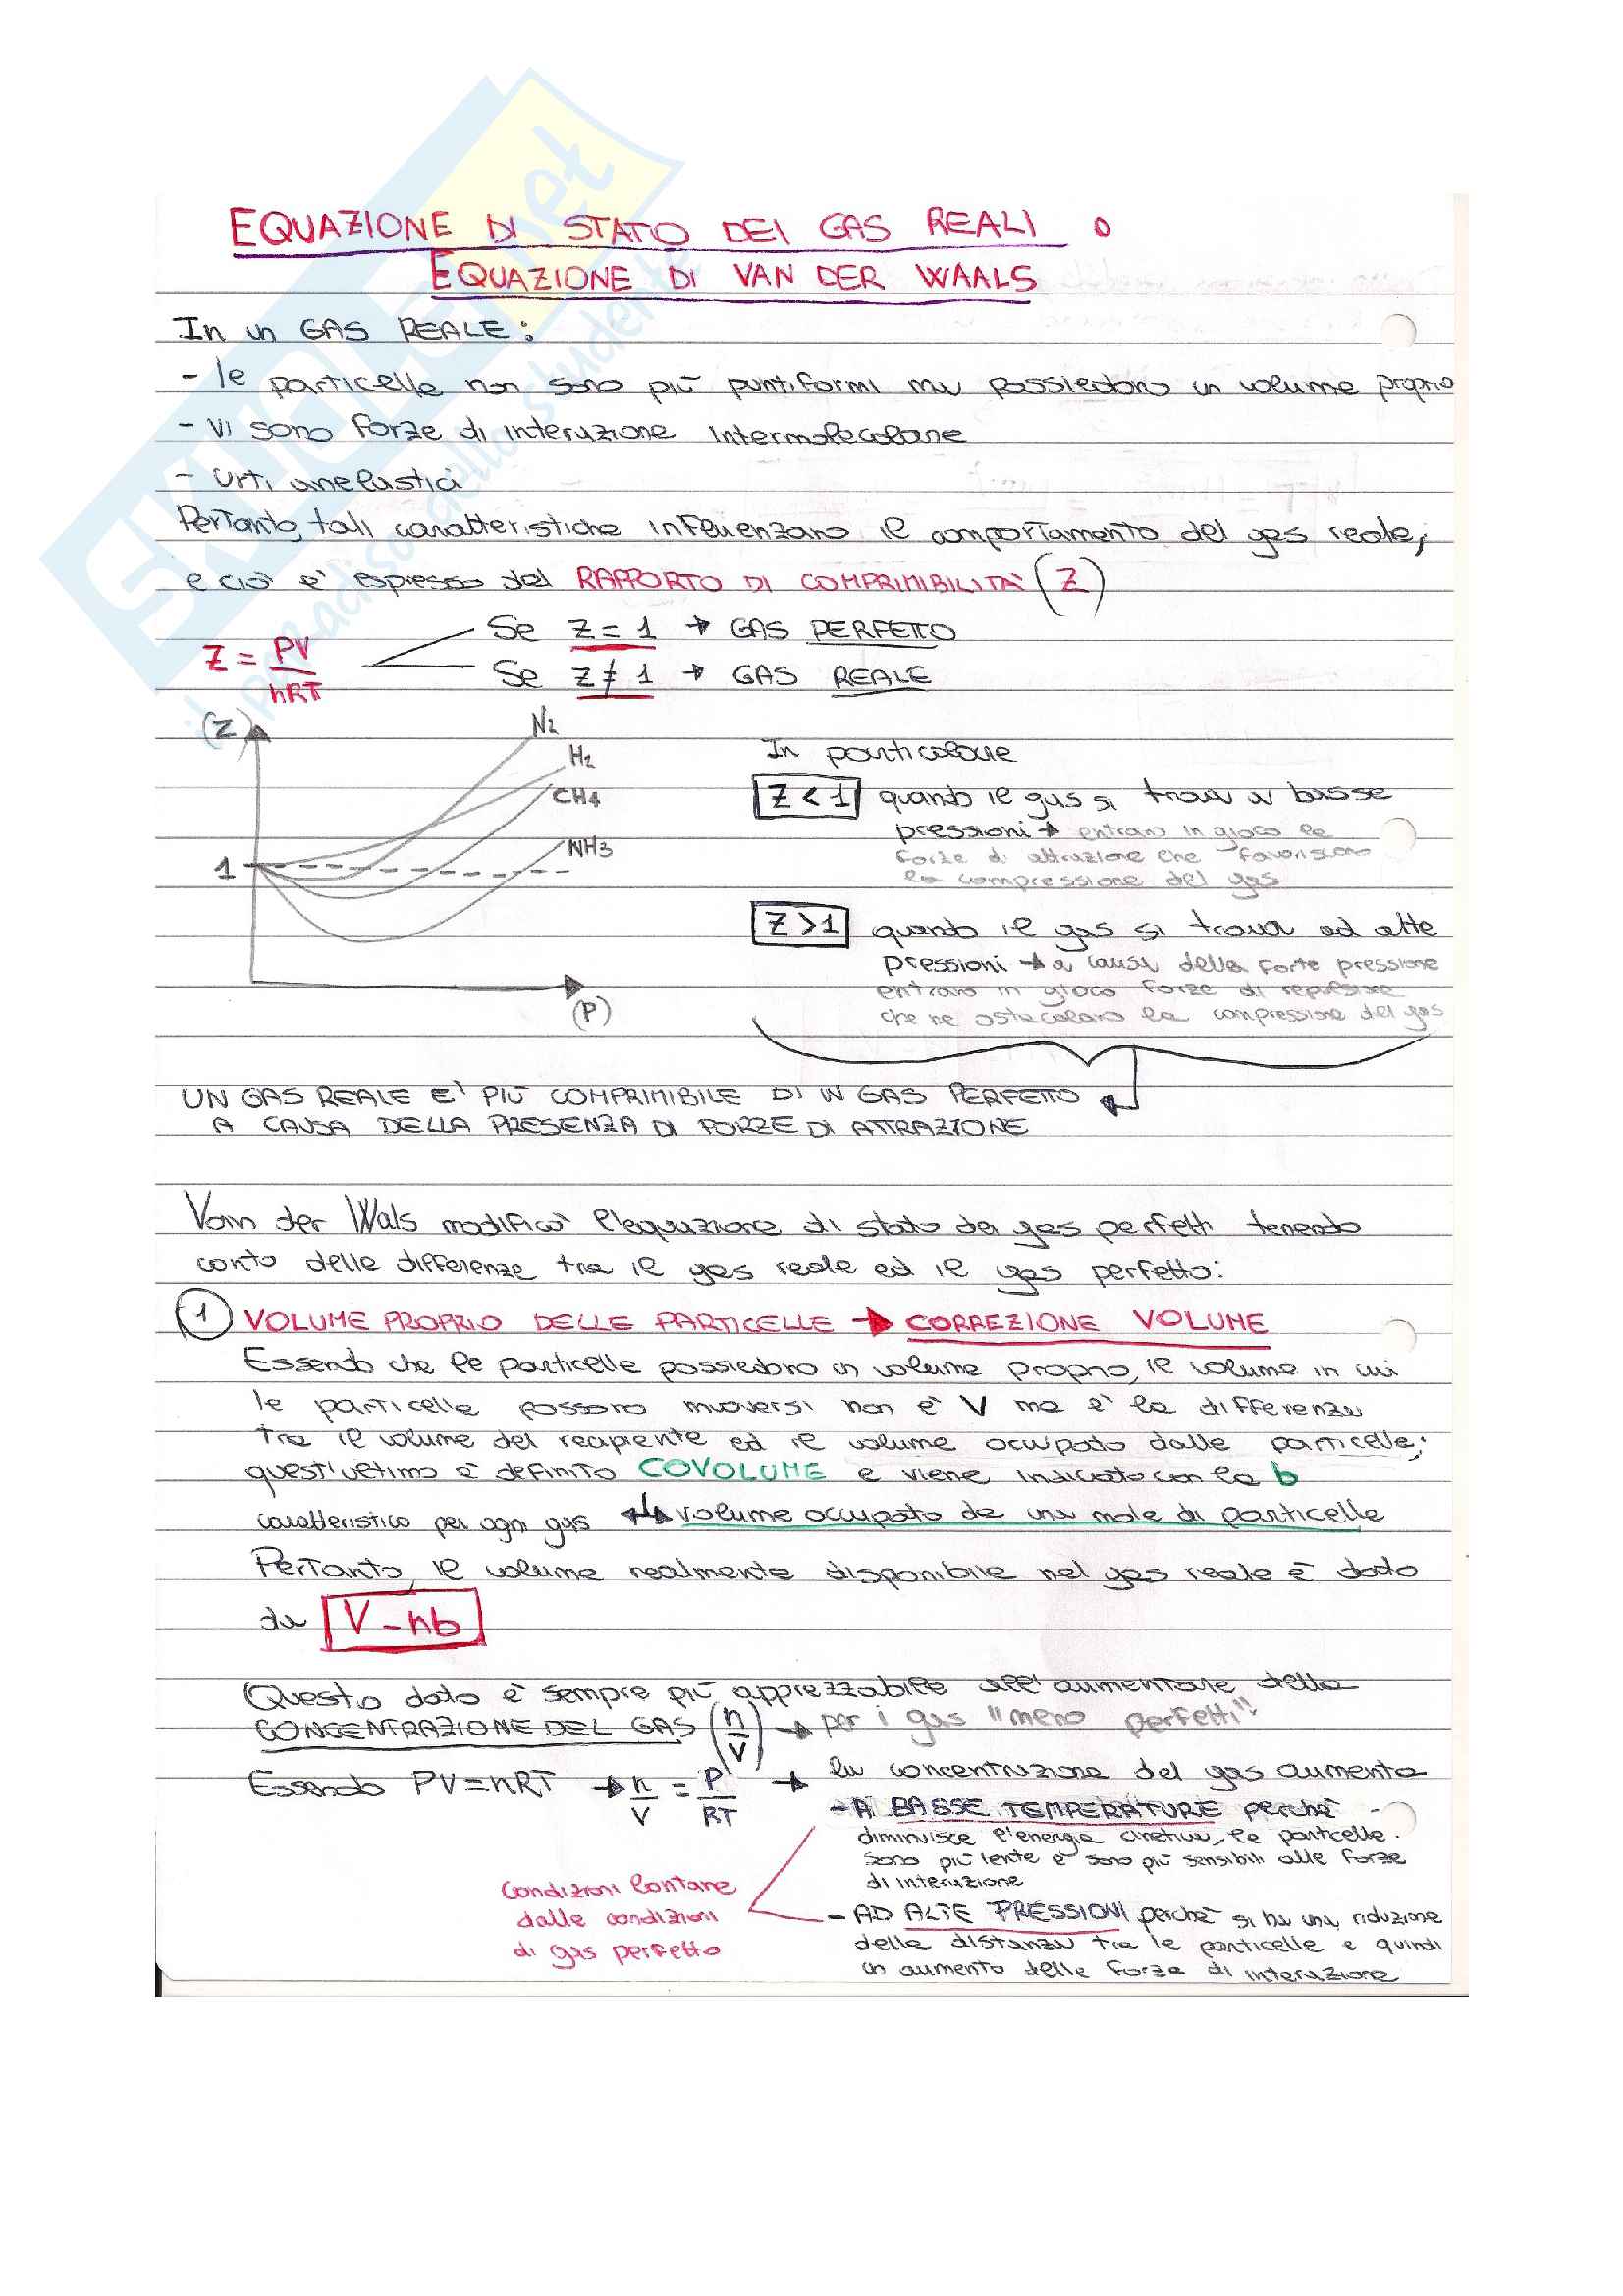 EQUAZIONE DI STATO DEI GAS REALI O
EQUAZIONE DI VAN DER WAALS
In un GAS REALE:
- le particelle non sono più puntiformi ma possiedono un volume proprio
- Vi sono forze di interazione intermolecolare
- Urti anelastici
Pertanto, tali caratteristiche influenzano il comportamento del gas reale,
e ciò è espresso dal RAPPORTO DI COMPRIMIBILITÀ (Z)
Z = PV/nRT
Se Z = 1 → GAS PERFETTO
Se Z ≠ 1 → GAS REALE
(Z)
N2
H2
CH4
NH3
1
(P)
In particolare
Z < 1 quando il gas si trova a basse
pressioni → entrano in gioco le
forze di attrazione che favoriscono
la compressione del gas
Z > 1 quando il gas si trova ad alte
pressioni → a causa della forte pressione
entrano in gioco forze di repulsione
che ne ostacolano la compressione del gas
UN GAS REALE E' PIÙ COMPRIMIBILE DI UN GAS PERFETTO
A CAUSA DELLA PRESENZA DI FORZE DI ATTRAZIONE
Van der Wals modificò l'equazione di stato dei gas perfetti tenendo
conto delle differenze tra il gas reale ed il gas perfetto:
1 VOLUME PROPRIO DELLE PARTICELLE → CORREZIONE VOLUME
Essendo che le particelle possiedono un volume proprio, il volume in cui
le particelle possono muoversi non è V ma è la differenza
tra il volume del recipiente ed il volume occupato dalle particelle;
quest'ultimo è definito COVOLUME e viene indicato con la b
caratteristico per ogni gas → volume occupato da una mole di particelle
Pertanto, il volume realmente disponibile nel gas reale è dato
da V - nb
Questo dato è sempre più apprezzabile all'aumentare della
CONCENTRAZIONE DEL GAS (n/V) → per i gas "meno perfetti"
Essendo PV = nRT → n/V = P/RT → la concentrazione del gas aumenta
- A BASSE TEMPERATURE perchè
diminuisce l'energia cinetica, le particelle
sono più lente e sono più sensibili alle forze
di interazione
Condizioni lontane
dalle condizioni
di gas perfetto
- AD ALTE PRESSIONI perchè si ha una riduzione
della distanza tra le particelle e quindi
un aumento delle forze di interazione